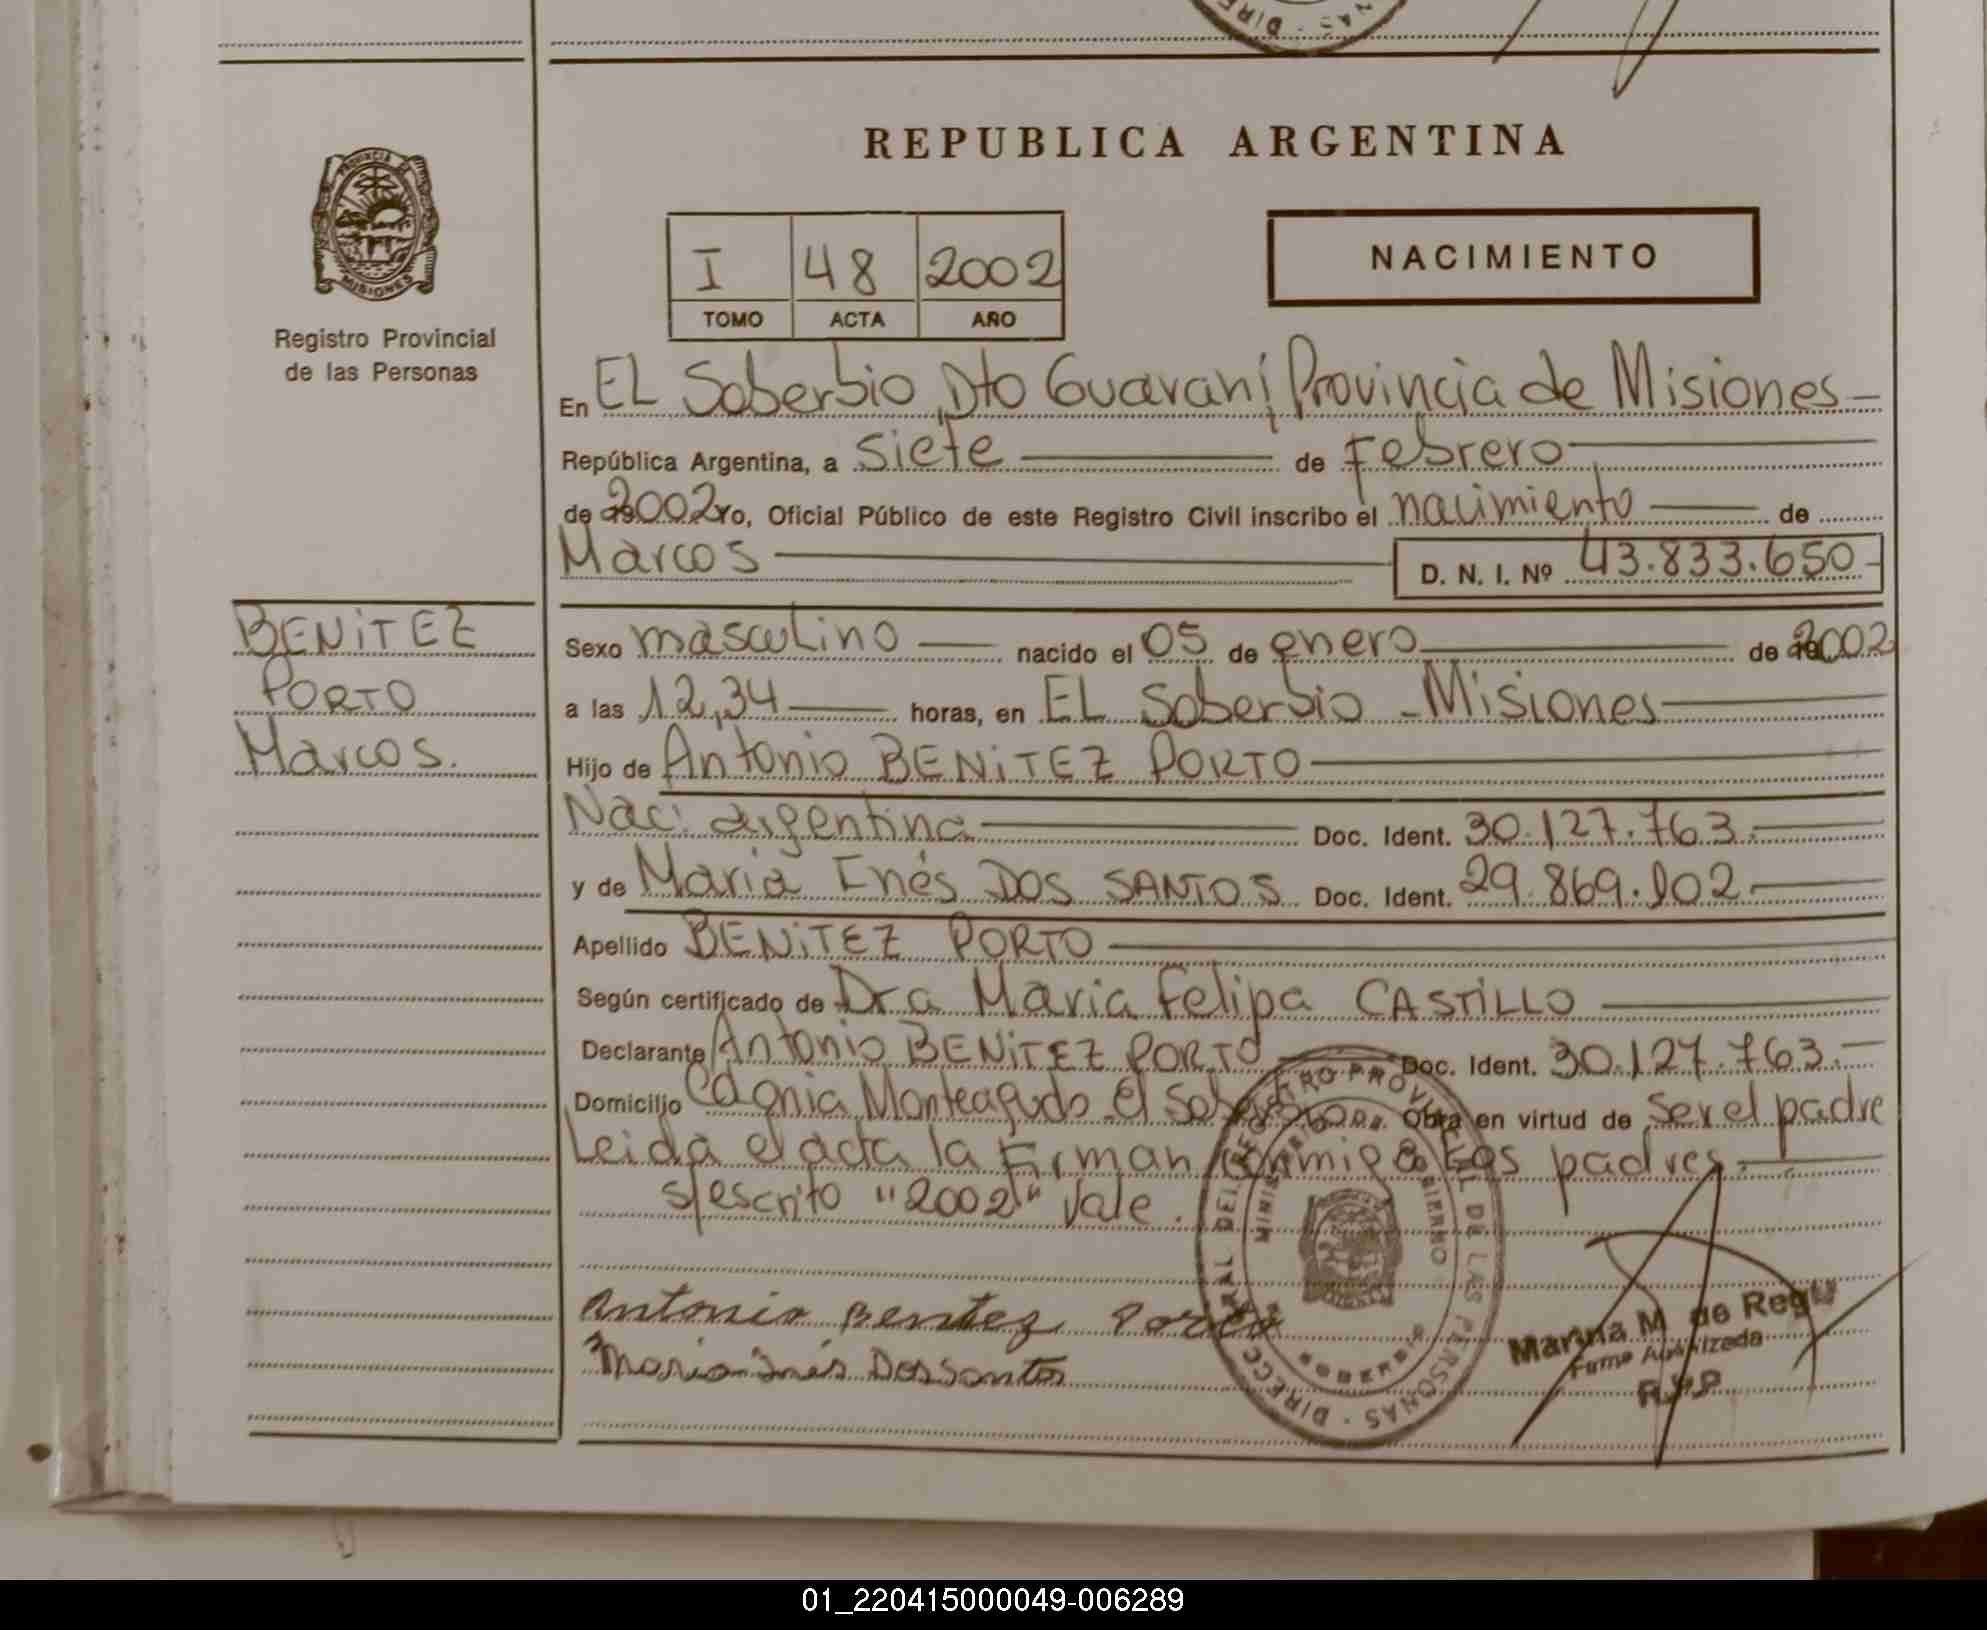 REPUBLICA ARGENTINA
PROVINCIA DE MISIONES
Registro Provincial
de las Personas
I 48 2002
TOMO ACTA AÑO
NACIMIENTO
En EL Soberbio, Dto Guaraní, Provincia de Misiones
República Argentina, a siete de febrero
de 2002 Yo, Oficial Público de este Registro Civil inscribo el nacimiento de
Marcos D. N. I. Nº 43.833.650
BENITEZ
PORTO
Marcos.
Sexo masculino nacido el 05 de enero de 2002
a las 12,34 horas, en EL Soberbio - Misiones
Hijo de Antonio BENITEZ PORTO
Nac. argentina Doc. Ident. 30.127.763.
y de Maria Inés DOS SANTOS Doc. Ident. 29.869.102
Apellido BENITEZ PORTO
Según certificado de Dra Maria Felipa CASTILLO
Declarante Antonio BENITEZ PORTO Doc. Ident. 30.127.763.
Domicilio Colonia Monteagudo El Soberbio Obra en virtud de ser el padre
Leida el acta la Firman conmigo Los padres.
s/escrito "2002" vale.
Antonio Benitez Porto
Maria Inés Dos Santos
DIRECC. GRAL DEL REGISTRO PROVINCIAL DE LAS PERSONAS
MINISTERIO DE GOBIERNO
SOBERBIO
Marina M. de Regu
Firma Autorizada
R.P.P
01_220415000049-006289